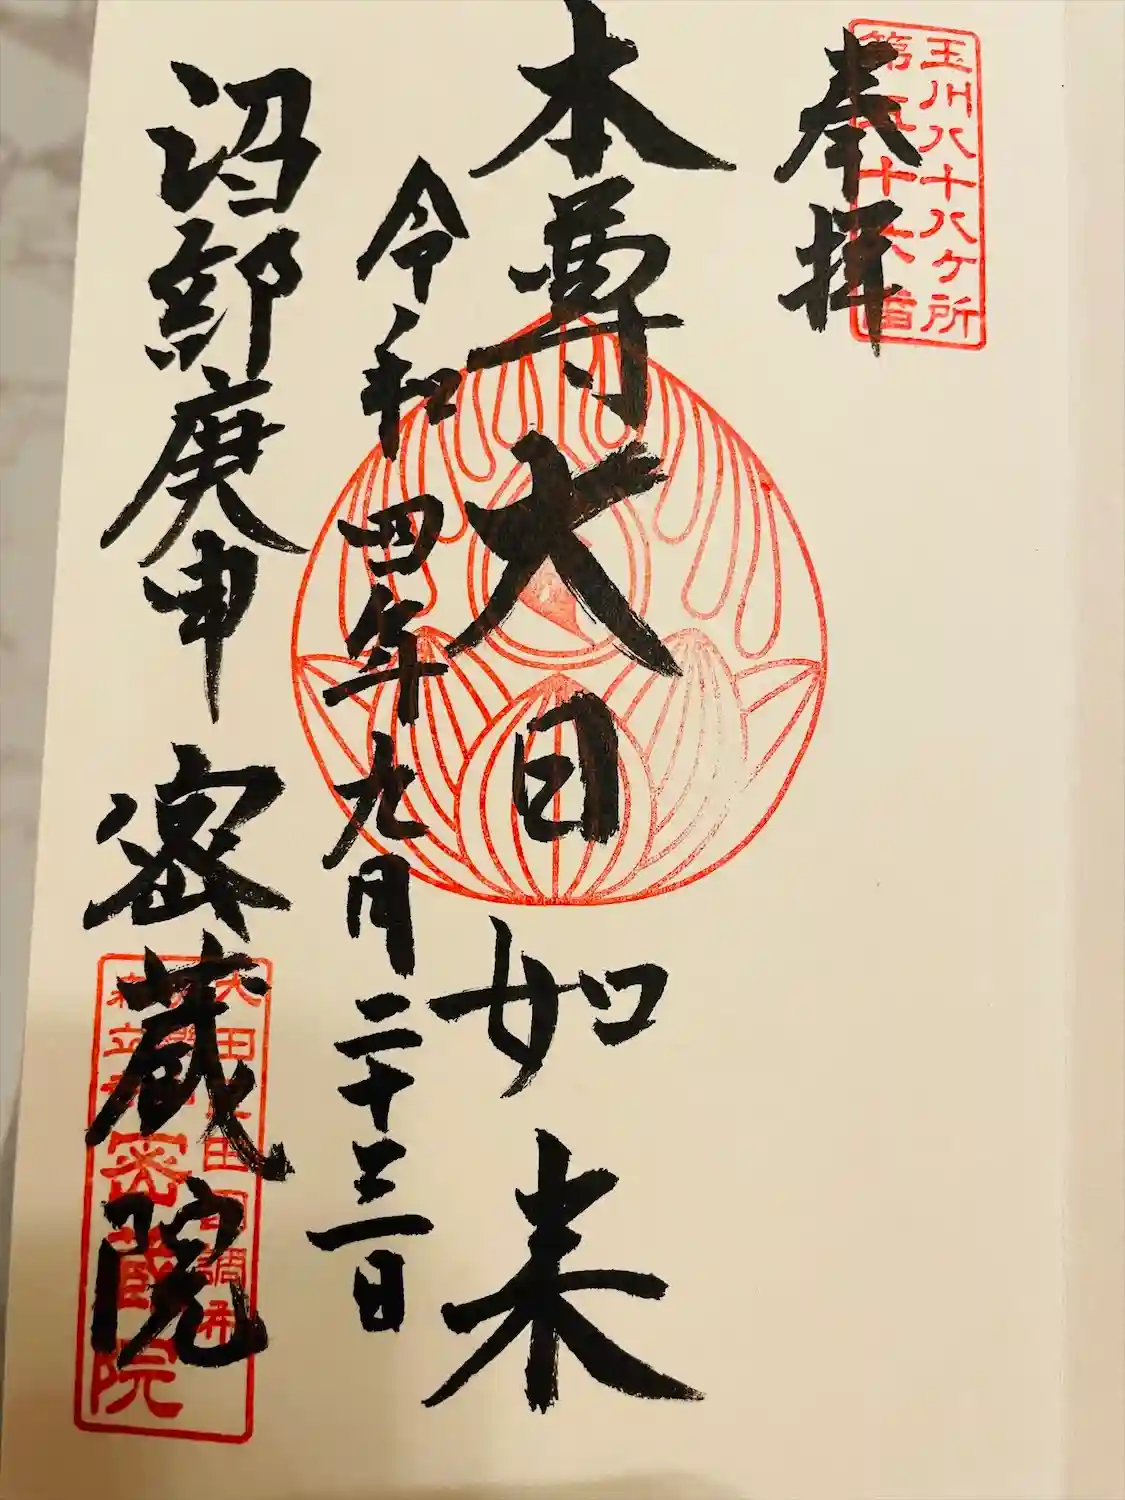 玉川八十八ケ所
第五十六番
奉拝
本尊大日如来
令和四年九月二十三日
沼部庚申 密蔵院
密蔵院